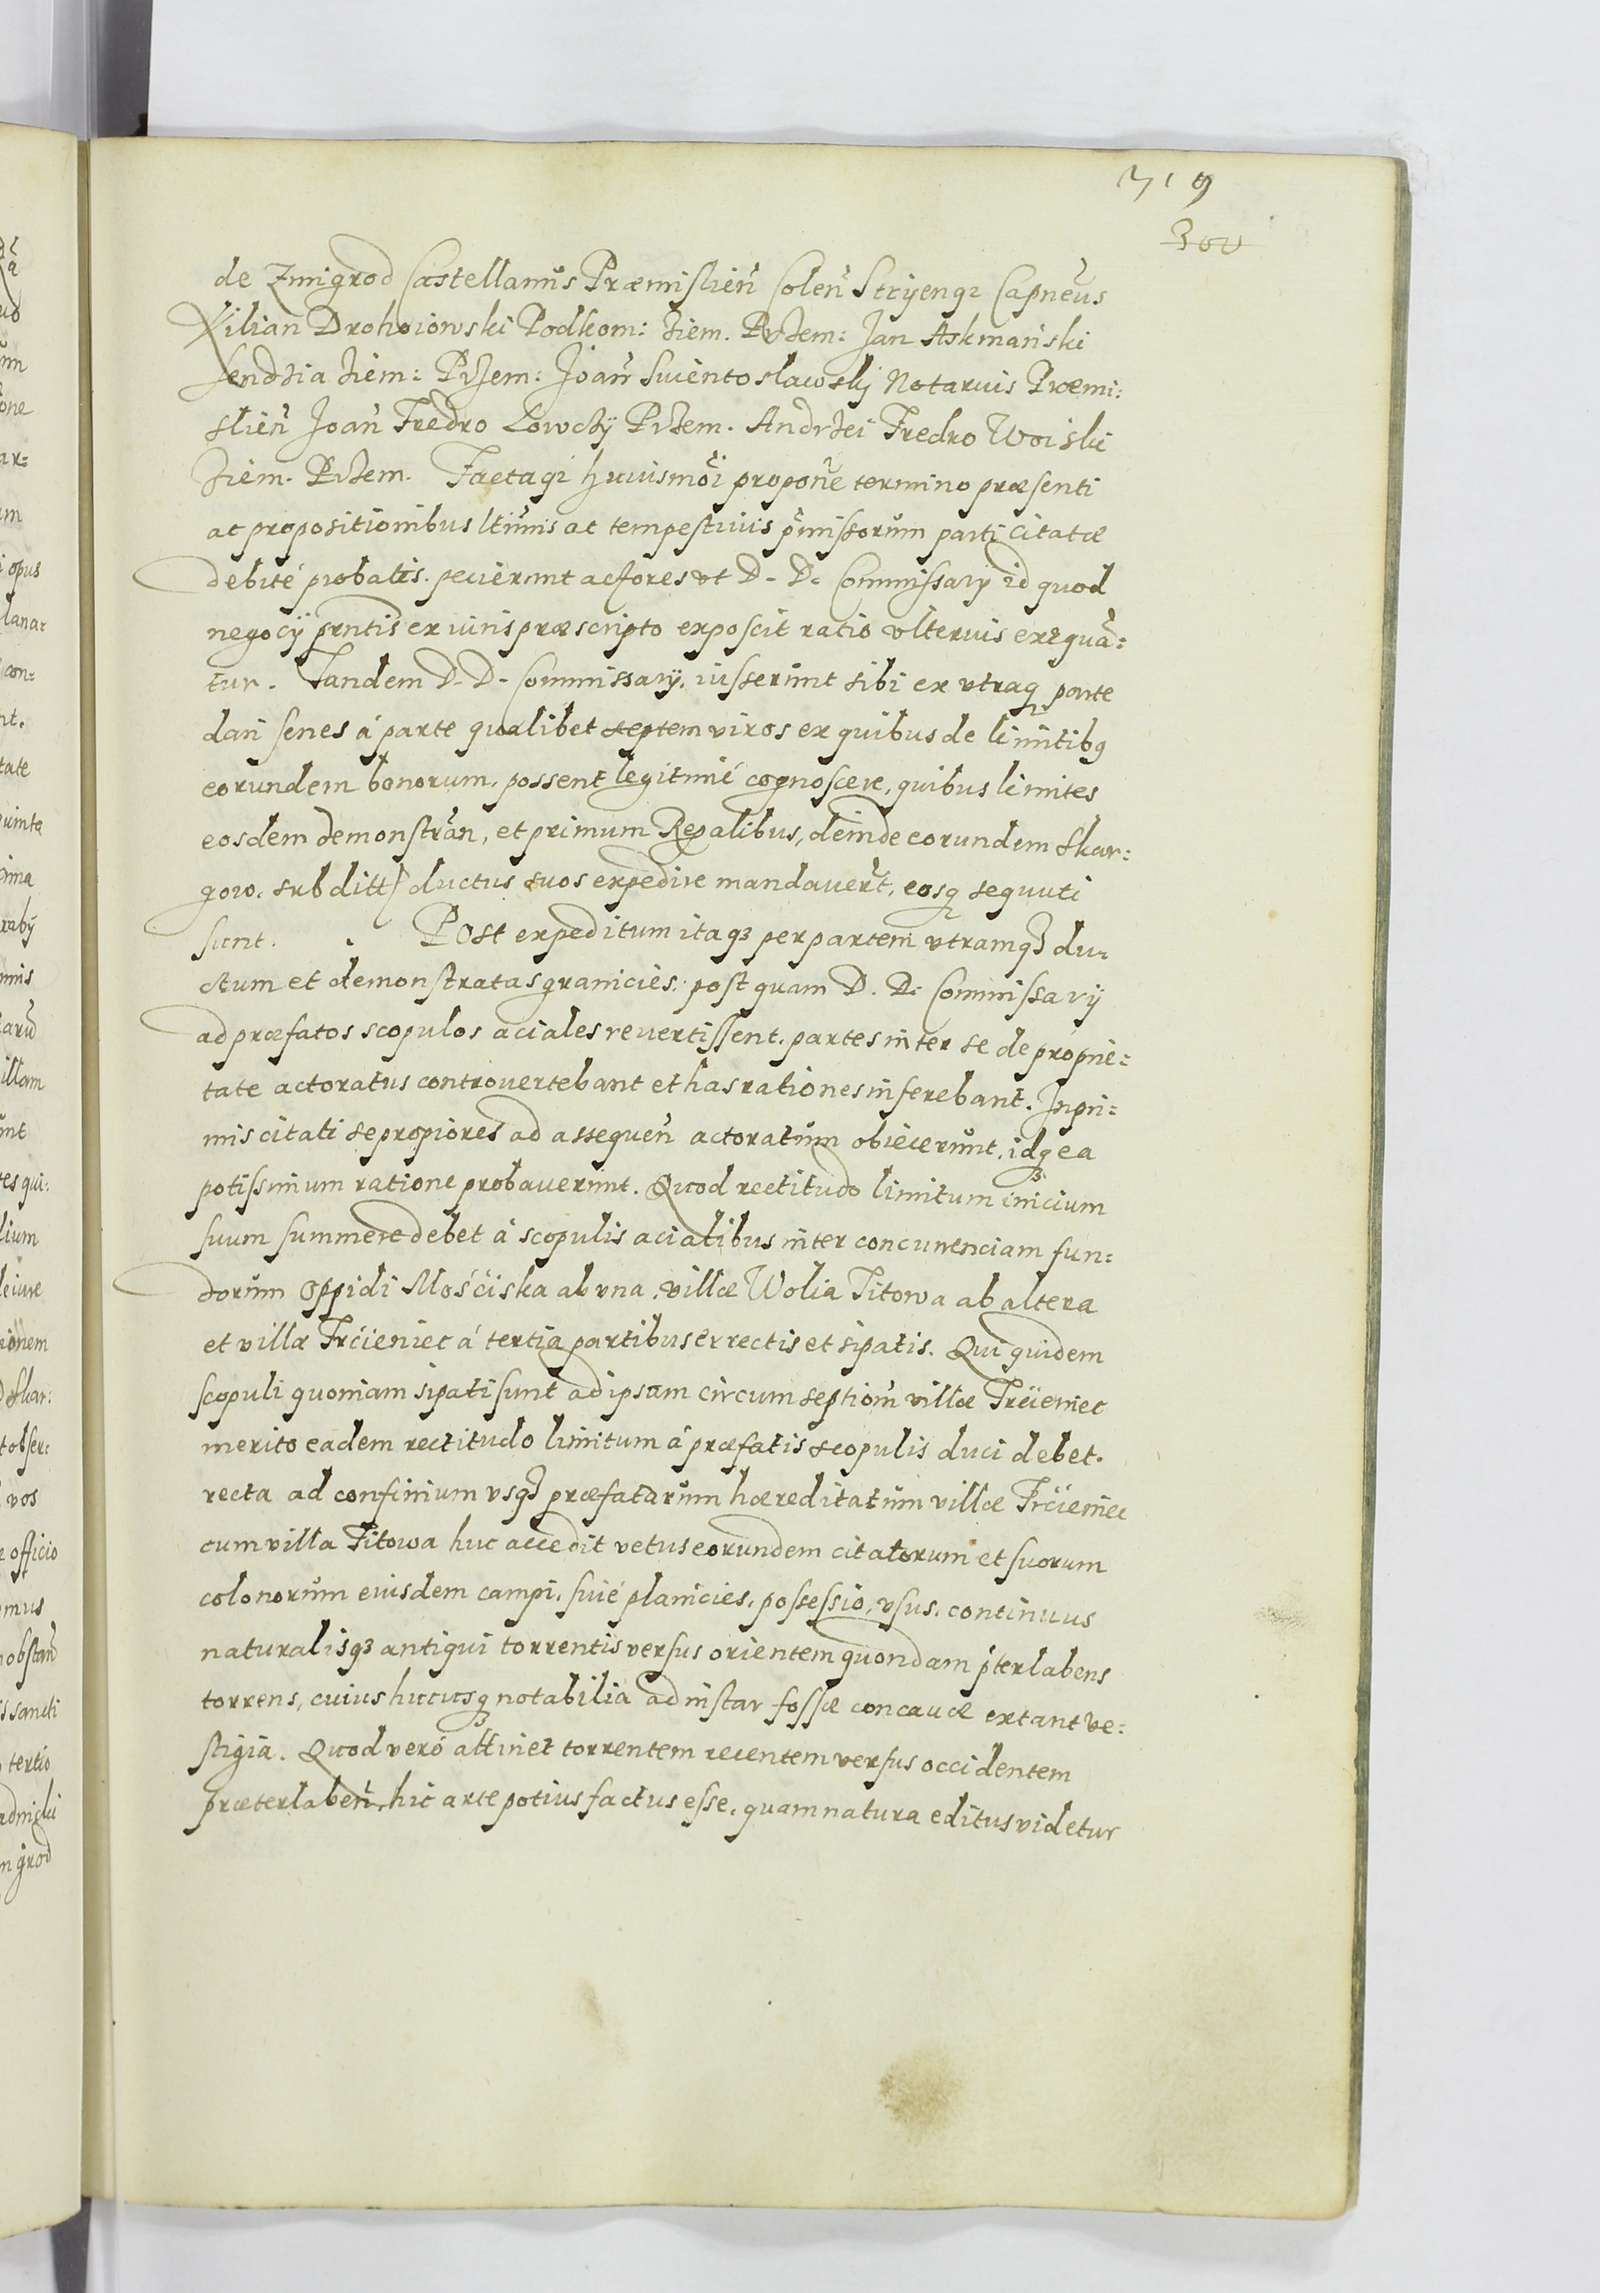 319
300
de Zmigrod Castellanus Præmislień Coleń Stryenqȝ Capneus
Kilian Drohoiowski Podkom: Ziem. Przem: Jan Askmański
Sendzia Ziem: Przem: Joań Swentoslawskj Notarius Præmi:
slień Joań Fredro Lowczÿ Przem. Andrzei Fredro Woiski
Ziem. Przem. Factaqȝ huiusmoi propone termino præsenti
ac propositionibus ltimis ac tempestiuis pmissorum parti citatæ
debité probatis. pecierunt actores vt D. D. Commissarÿ id quod
negocÿ prntis ex iuris præscripto exposcit ratio vlterius exequā=
tur. Tandem D. D. Commissarÿ. iusserunt sibi ex vtraq parte
dari senes á parte qualibet septem viros ex quibus de limitibq
eorundem bonorum. possent legitimé cognoscere, quibus limites
eosdem demonstrań, et primum Regalibus, deinde eorundem Skar=
gow. subditt ductus suos expedire mandauert, eosq sequuti
sunt. Post expeditum itaqȝ per partem vtramqȝ du=
ctum et demonstratas granicies. postquam D. D. Commissarÿ
ad præfatos scopulos aciales reuertissent. partes inter se de proprie=
tate actoratus controvertebant et has rationes inferebant. Inpri=
mis citati se propiores ad assequeń actoratum obiecerunt, idqȝ ea
potissimum ratione probauerunt. Quod rectitudo limitum inicium
suum summere debet á scopulis acialibus inter concurrenciam fun=
dorum Oppidi Mosciska ab vna, villæ Wolia Titowa ab altera
et villæ Trcieniec á tertia partibus errectis et sipatis. Qui quidem
scopuli quoniam sipati sunt ad ipsam circumseptioń villæ Trcieniec
merito eadem rectitudo limitum á præfatis scopulis duci debet.
recta ad confinium vsqȝ præfatarum hæreditatum villæ Trcieniec
cum villa Titowa huc accedit vetus eorundem citatorum et suorum
colonorum eiusdem campi. siué planicies. possessio, vsus. continuus
naturalisqȝ antiqui torrentis versus orientem quondam pterlabens
torrens, cuius hucusqȝ notabilia ad instar fossæ concauæ extant ve=
stigia. Quod veró attinet torrentem recentem versus occidentem
præterlabeń, hic arte potius factus esse, quam natura editus videtur